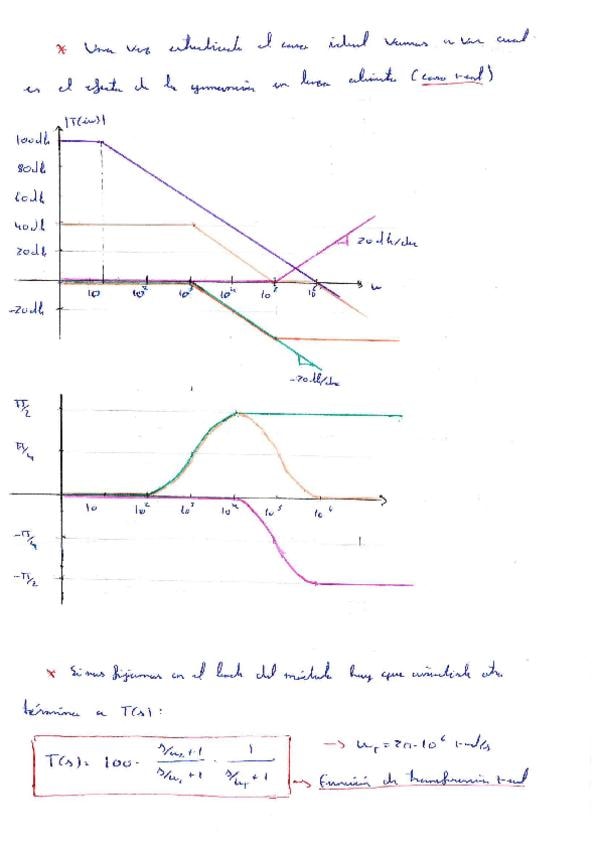 * Una vez estudiado el caso ideal vamos a ver cual
es el efecto de la ganancia en lazo abierto (caso real)
|T(jω)|
100db
80db
60db
40db
20db
20 db/dec
10 10² 10³ 10⁴ 10⁵ 10⁶ ω
-20db
-20db/dec
π/2
π/4
10 10² 10³ 10⁴ 10⁵ 10⁶
-π/4
-π/2
* Si nos fijamos en el del módulo hay que añadirle otro
término a T(s):
T(s) = 100 · (s/ω₂ + 1)/(s/ω₁ + 1) · 1/(s/ωT + 1) → ωT = 2π·10⁶ rad/s
→ Función de transferencia real